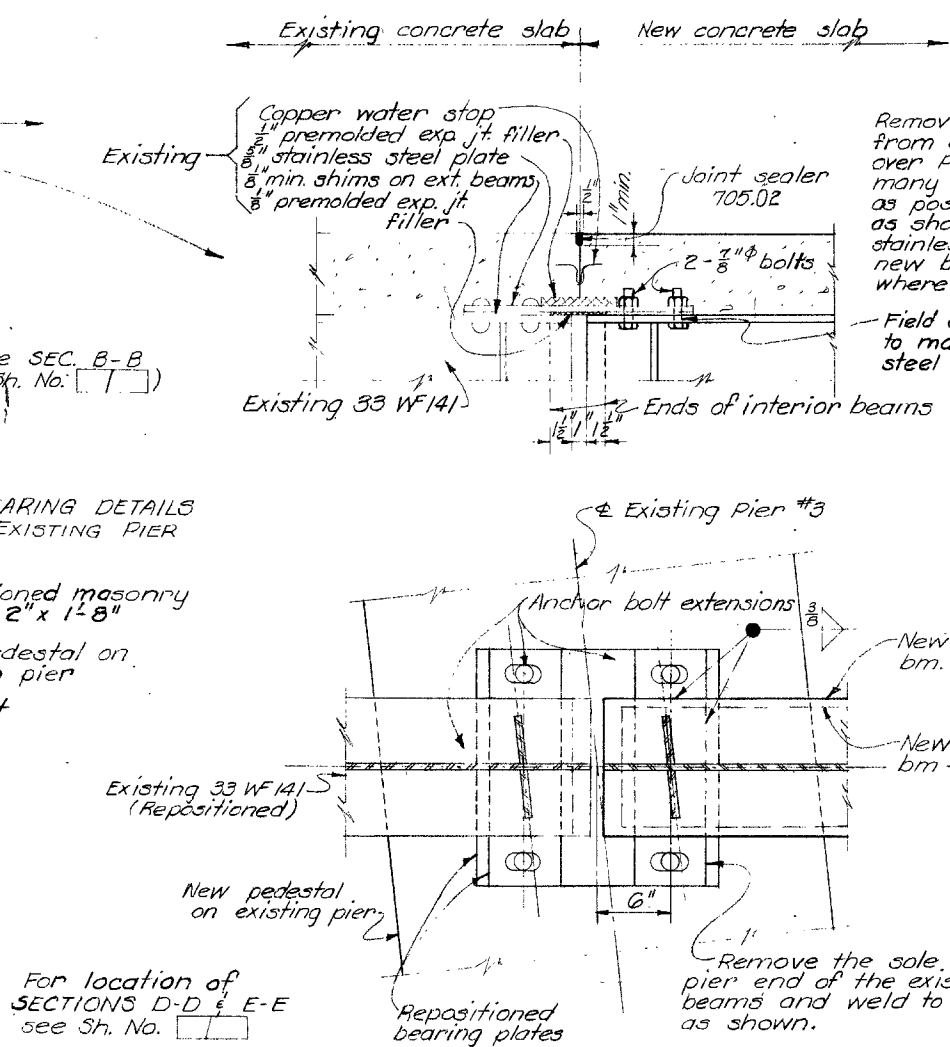 Existing concrete slab
New concrete slab
Copper water stop
1/2" premolded exp. jt. filler
stainless steel plate
1/8" min. shims on ext. beams
1/8" premolded exp. jt.
filler
Existing
1/2"
1" min.
Joint sealer
705.02
2-7/8"ϕ bolts
Remov
from
over
many
as pos
as sho
stainles
new b
where
Field
to ma
steel
e SEC. B-B
Sh. No. /)
Existing 33 WF 141
Ends of interior beams
1 1/2" 1" 1 1/2"
ARING DETAILS
EXISTING PIER
℄ Existing Pier #3
ioned masonry
2" x 1'-8"
Anchor bolt extensions
3/8
edestal on
pier
New
bm.
New
bm
Existing 33 WF 141
(Repositioned)
6"
New pedestal
on existing pier
For location of
SECTIONS D-D & E-E
see Sh. No. /
Repositioned
bearing plates
Remove the sole
pier end of the exis
beams and weld to
as shown.